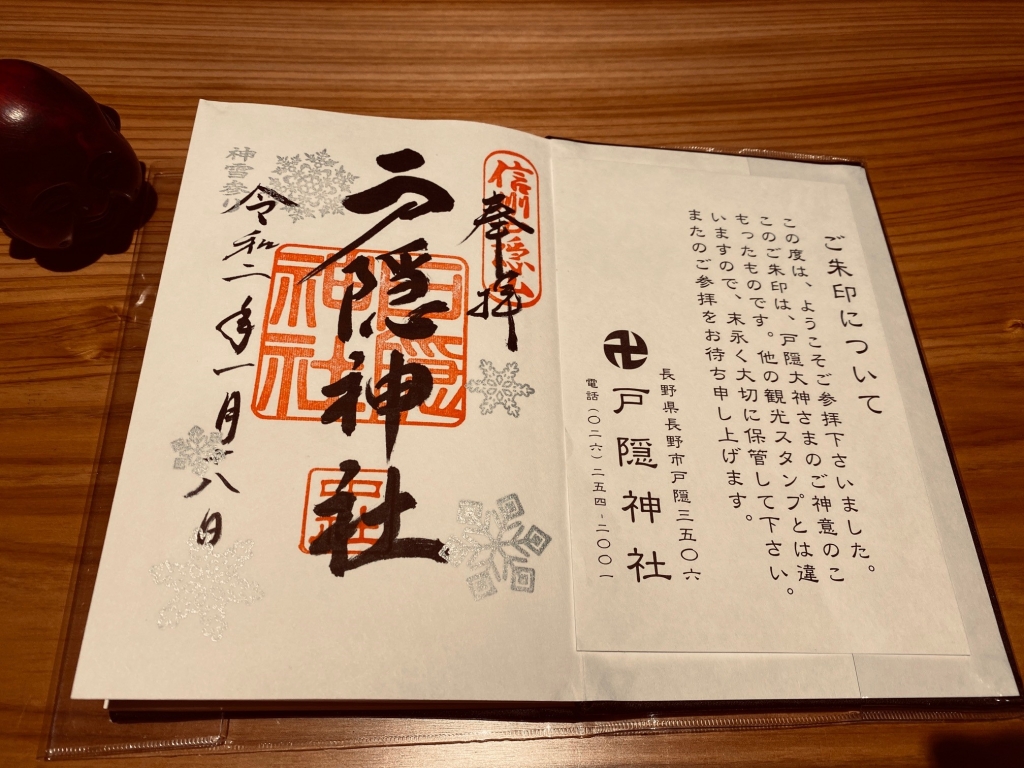 ご朱印について
この度は、ようこそご参拝下さいました。
このご朱印は、戸隠大神さまのご神意のこ
もったものです。他の観光スタンプとは違
いますので、末永く大切に保管して下さい。
またのご参拝をお待ち申し上げます。
長野県長野市戸隠三五〇六
卍戸隠神社
電話(〇二六)二五四-二〇〇一
信州戸隠山
奉拝
戸隠神社
戸隠
神社
中社
令和二年一月十八日
神雪参